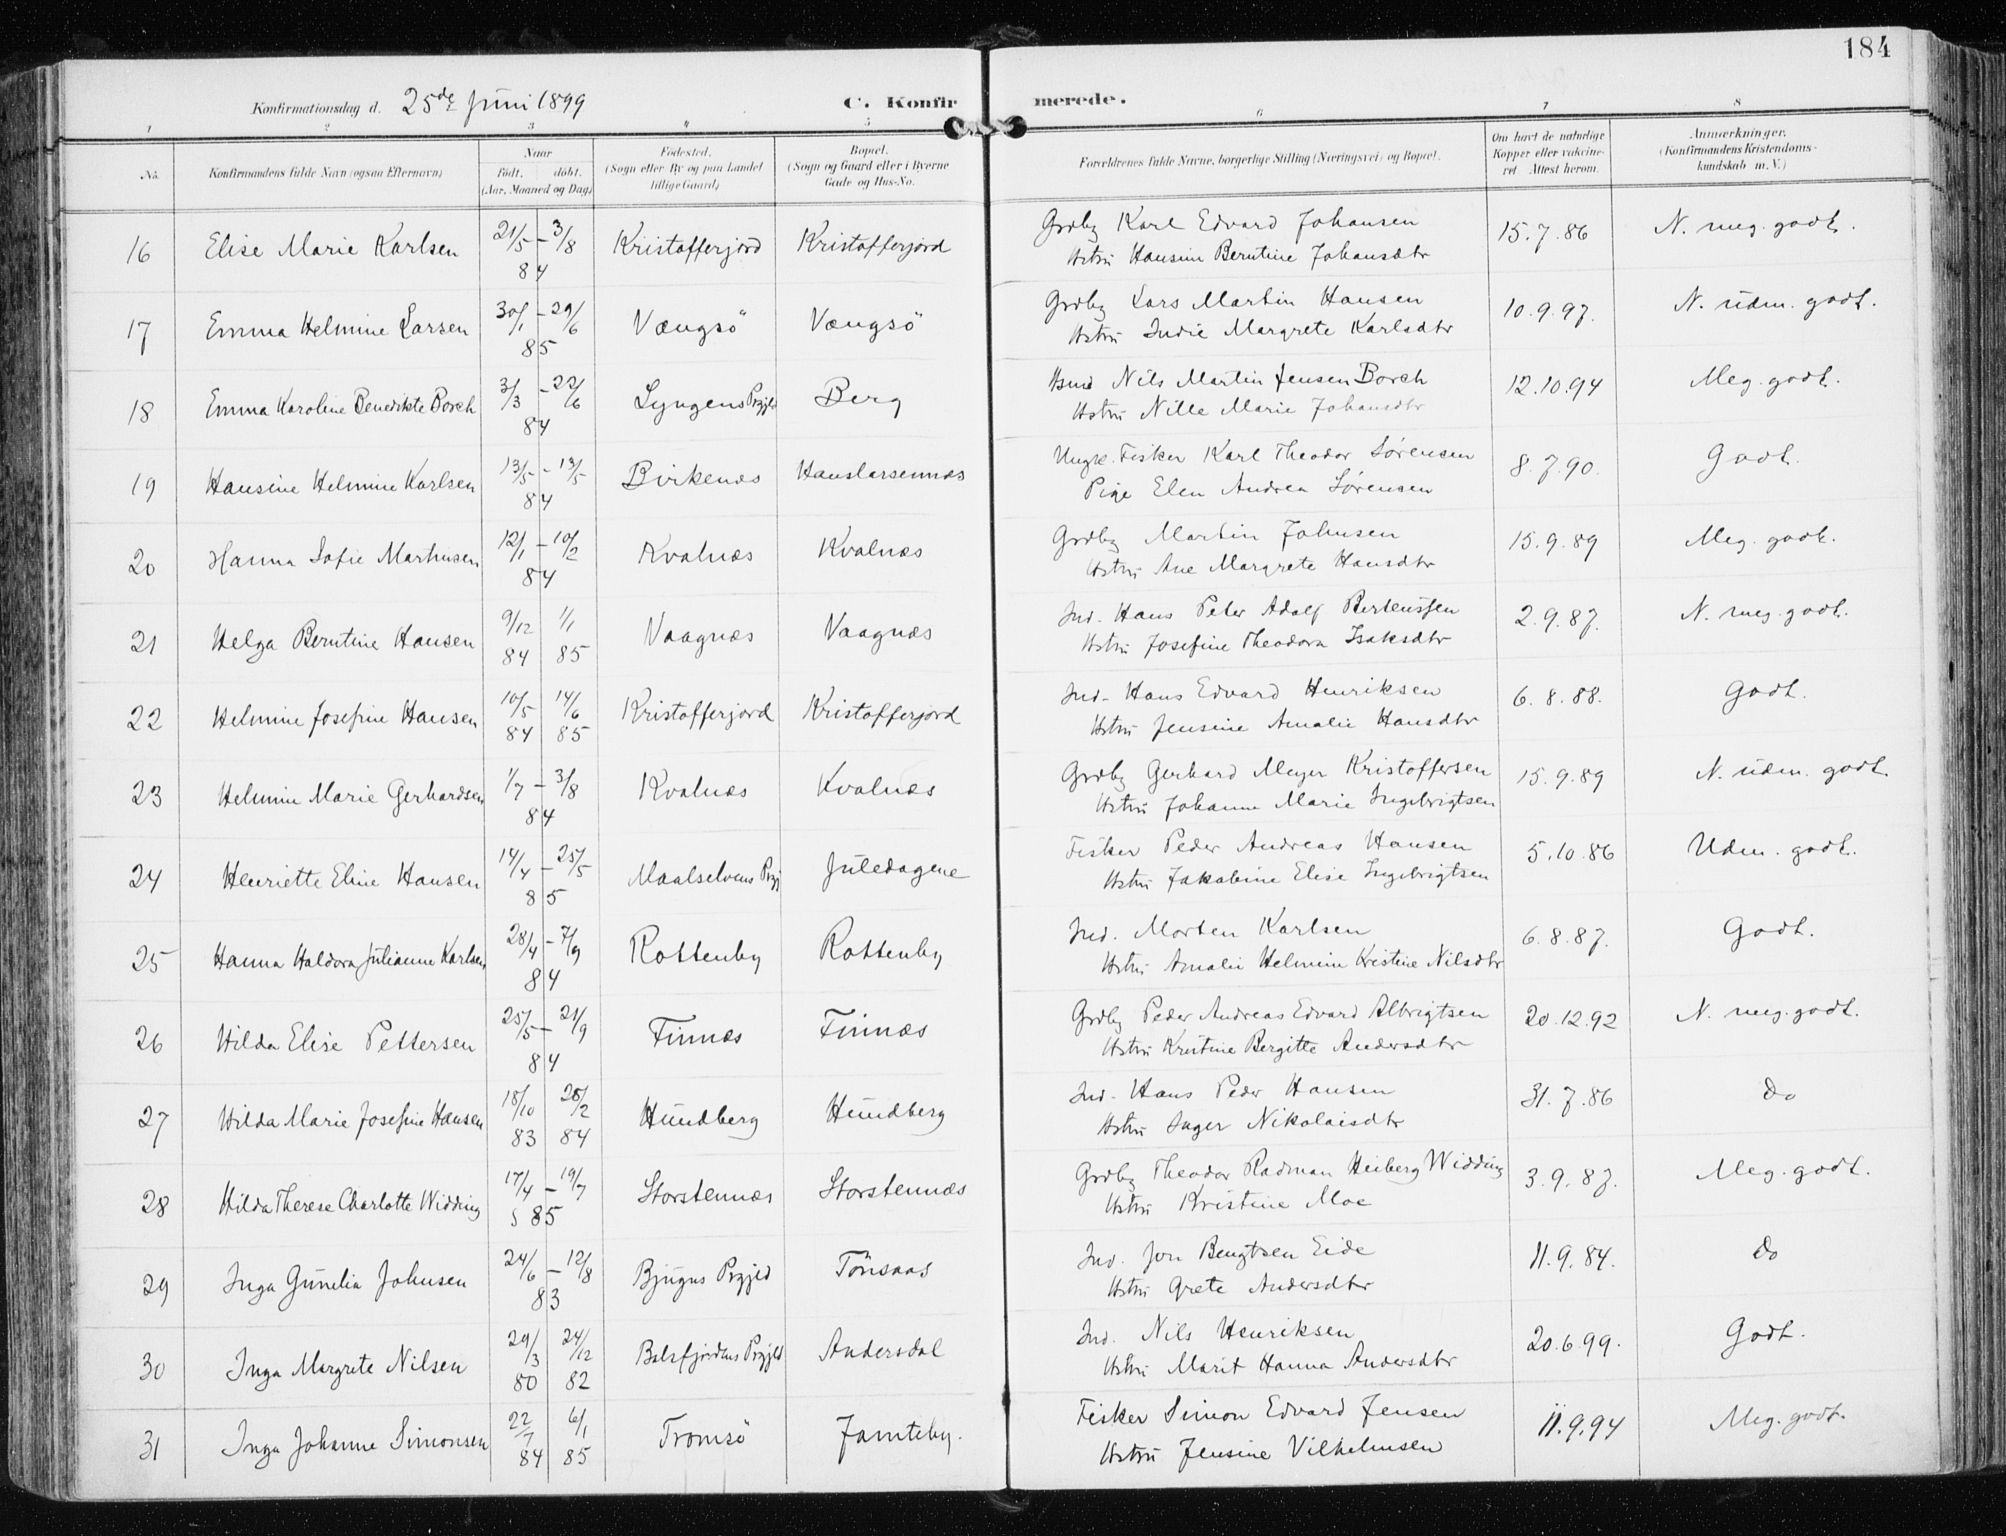 184
Konfirmationsdag d. 25de Juni 1899
C. Konfirmerede.
1 2 3 4 5 6 7 8
No.
Konfirmandens fulde Navn (ogsaa Efternavn)
Naar
født. døbt.
(Aar, Maaned og Dag)
Fødested.
(Sogn eller By og paa Landet
tillige Gaard)
Bopæl.
(Sogn og Gaard eller i Byerne
Gade og Hus-No.
Forældrenes fulde Navne, borgerlige Stilling (Næringsvei) og Bopæl.
Om havt de naturlige
Kopper eller vakcine-
ret Attest herom.
Anmærkninger.
(Konfirmandens Kristendoms-
kundskab m. V.)
16 Elise Marie Karlsen 21/5 - 3/8 84 Kristofferjord Kristofferjord Grdbg Karl Edvard Johansen 15.7.86 N. meg. godt.
Hstru Hansine Berntine Johansdtr
17 Emma Helmine Larsen 30/1 - 29/6 85 Vængsö Vængsö Grdbg Lars Martin Hansen 10.9.97. N. udm. godt.
Hstru Indie Margrete Karlsdtr
18 Emma Karoline Benedikte Borch 3/3 - 22/6 84 Lyngens Prgjld Berg Hsmd Nils Martin Jensen Borch 12.10.94 Meg. godt.
Hstru Nille Marie Johansdtr
19 Hansine Helmine Karlsen 13/5 - 13/5 84 Birkenæs Hanslarsennæs Ungk. Fisker Karl Theodor Sørensen 8.7.90. Godt.
Pige Elen Andrea Sørensen
20 Hanna Sofie Martinsen 12/1 - 10/2 84 Kvalnæs Kvalnæs Grdbg Martin Johnsen 15.9.89 Meg. godt.
Hstru Ane Margrete Hansdtr
21 Helga Berntine Hansen 9/12 84 1/1 85 Vaagnæs Vaagnæs Ind. Hans Peter Adolf Bertenssen 2.9.87. N. meg. godt.
Hstru Josefine Theodora Isaksdtr
22 Helmine Josefine Hansen 10/5 84 14/6 85 Kristofferjord Kristofferjord Ind. Hans Edvard Henriksen 6.8.88. Godt.
Hstru Jensine Amalie Hansdtr
23 Helmine Marie Gerhardsen 1/7 - 3/8 84 Kvalnæs Kvalnæs Grdbg Gerhard Meyer Kristoffersen 15.9.89 N. udm. godt.
Hstru Johanne Marie Ingebrigtsen
24 Henriette Eline Hansen 14/4 - 25/5 85 Maalselvens Prgj Juledagene Fisker Peder Andreas Hansen 5.10.86 Udm. godt.
Hstru Jakobine Elise Ingebrigtsen
25 Hanna Haldora Julianne Karlsen 28/4 - 7/9 84 Rottenby Rottenby Ind. Morten Karlsen 6.8.87. Godt.
Hstru Amalie Helmine Kristine Nilsdtr
26 Hilda Elise Pettersen 25/5 - 21/9 84 Finnæs Finnæs Grdbg Peder Andreas Edvard Albrigtsen 20.12.92 N. meg. godt.
Hstru Kristine Bergitte Andersdtr
27 Hilda Marie Josefine Hansen 18/10 83 20/2 84 Hundberg Hundberg Ind. Hans Peder Hansen 31.7.86 Do
Hstru Inger Nikolaisdtr
28 Hilda Therese Charlotte Widding 17/4 - 19/7 85 Storstennæs Storstennæs Grdbg Theodor Radman Heiberg Widding 3.9.87. Meg. godt.
Hstru Kristine Moe
29 Inga Gunelia Johnsen 24/6 - 12/8 83 Bjugns Prgjld Tönsaas Ind. Jon Bengtsen Eide 11.9.84. Do
Hstru Grete Andersdtr
30 Inga Margrete Nilsen 29/3 80 24/12 82 Balsfjordens Prgjld Andersdal Ind. Nils Henriksen 20.6.99. Godt.
Hstru Marit Hanna Andersdtr
31 Inga Johanne Simonsen 22/7 84 6/1 85 Tromsö Jamteby. Fisker Simon Edvard Jensen 11.9.94 Meg. godt.
Hstru Jensine Vilhelmsen